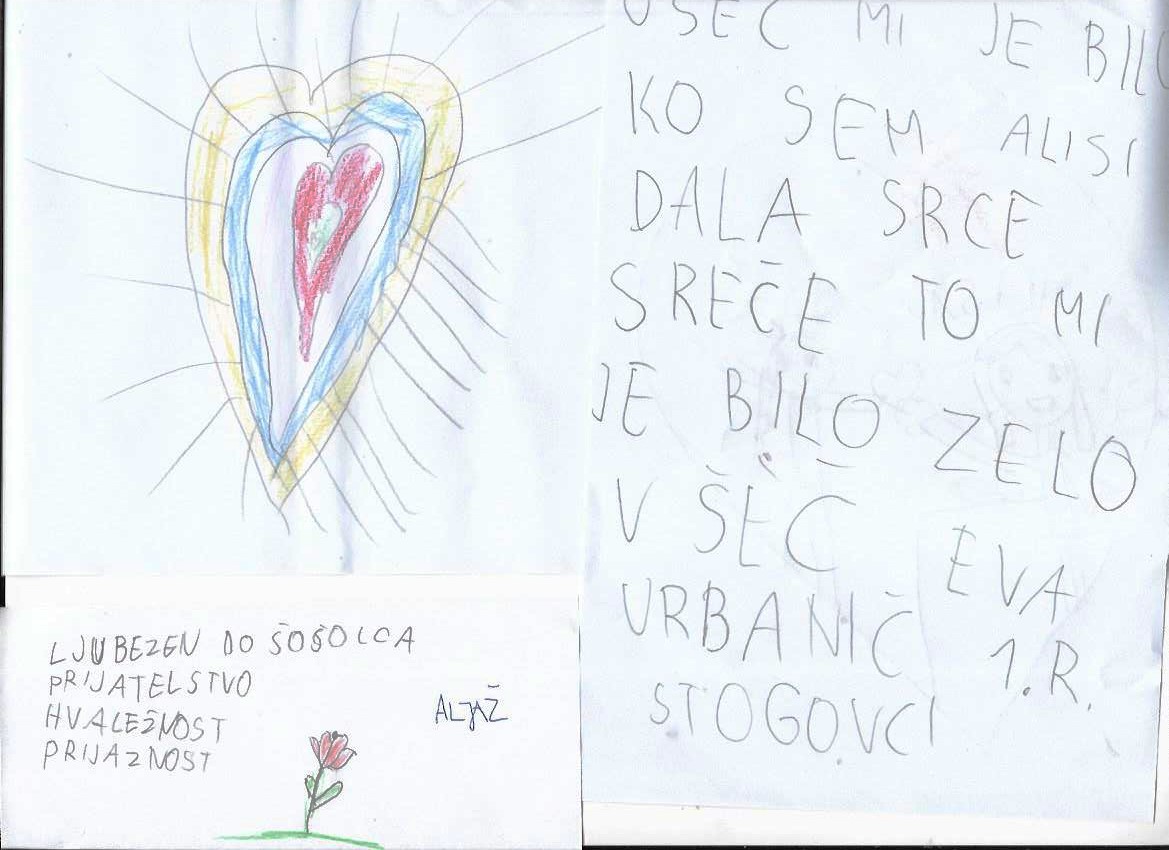 VSEC MI JE BILO
KO SEM ALISI
DALA SRCE
SREČE TO MI
JE BILO ZELO
V ŠEČ EVA
URBANIČ 1.R.
STOGOVCI
LJUBEZEN DO ŠOŠOLCA
PRIJATELSTVO
HVALEŽNOST
PRIJAZNOST
ALJAŽ